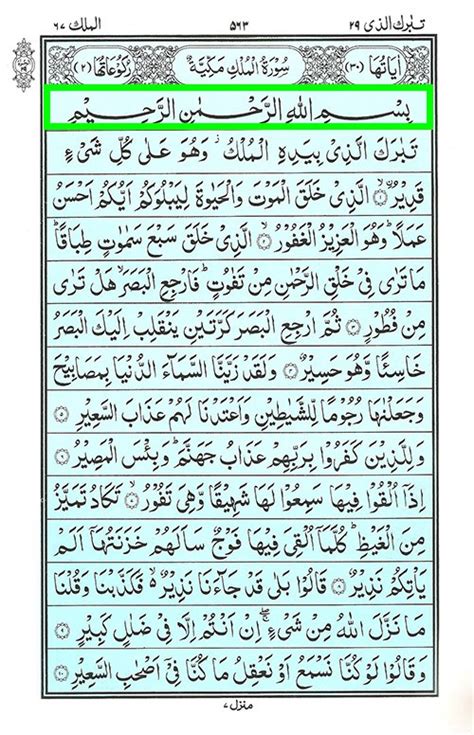 تبٰرك الذی ۲۹
۵۶۳
الملك ۶۷
اٰیَاتُهَا (۳۰) سُوْرَةُ الْمُلْكِ مَكِّیَّةٌ رُكُوْعَاتُهَا (۲)
بِسْمِ اللّٰهِ الرَّحْمٰنِ الرَّحِیْمِ
تَبٰرَكَ الَّذِیْ بِیَدِهِ الْمُلْكُ ؗ وَهُوَ عَلٰی كُلِّ شَیْءٍ
قَدِیْرُ ۙ﴿۱﴾ الَّذِیْ خَلَقَ الْمَوْتَ وَالْحَیٰوةَ لِیَبْلُوَكُمْ اَیُّكُمْ اَحْسَنُ
عَمَلًا ؕ وَهُوَ الْعَزِیْزُ الْغَفُوْرُ ۙ﴿۲﴾ الَّذِیْ خَلَقَ سَبْعَ سَمٰوٰتٍ طِبَاقًا ؕ
مَا تَرٰی فِیْ خَلْقِ الرَّحْمٰنِ مِنْ تَفٰوُتٍ ؕ فَارْجِعِ الْبَصَرَ ۙ هَلْ تَرٰی
مِنْ فُطُوْرٍ ﴿۳﴾ ثُمَّ ارْجِعِ الْبَصَرَ كَرَّتَیْنِ یَنْقَلِبْ اِلَیْكَ الْبَصَرُ
خَاسِئًا وَّهُوَ حَسِیْرٌ ﴿۴﴾ وَلَقَدْ زَیَّنَّا السَّمَآءَ الدُّنْیَا بِمَصَابِیْحَ
وَجَعَلْنٰهَا رُجُوْمًا لِّلشَّیٰطِیْنِ وَاَعْتَدْنَا لَهُمْ عَذَابَ السَّعِیْرِ ﴿۵﴾
وَلِلَّذِیْنَ كَفَرُوْا بِرَبِّهِمْ عَذَابُ جَهَنَّمَ ؕ وَبِئْسَ الْمَصِیْرُ ﴿۶﴾
اِذَاۤ اُلْقُوْا فِیْهَا سَمِعُوْا لَهَا شَهِیْقًا وَّهِیَ تَفُوْرُ ۙ﴿۷﴾ تَكَادُ تَمَیَّزُ
مِنَ الْغَیْظِ ؕ كُلَّمَاۤ اُلْقِیَ فِیْهَا فَوْجٌ سَاَلَهُمْ خَزَنَتُهَاۤ اَلَمْ
یَاْتِكُمْ نَذِیْرٌ ﴿۸﴾ قَالُوْا بَلٰی قَدْ جَآءَنَا نَذِیْرٌ ۙ۬ فَكَذَّبْنَا وَقُلْنَا
مَا نَزَّلَ اللّٰهُ مِنْ شَیْءٍ ۚۖ اِنْ اَنْتُمْ اِلَّا فِیْ ضَلٰلٍ كَبِیْرٍ ﴿۹﴾
وَقَالُوْا لَوْ كُنَّا نَسْمَعُ اَوْ نَعْقِلُ مَا كُنَّا فِیْۤ اَصْحٰبِ السَّعِیْرِ ﴿۱۰﴾
منزل ۷